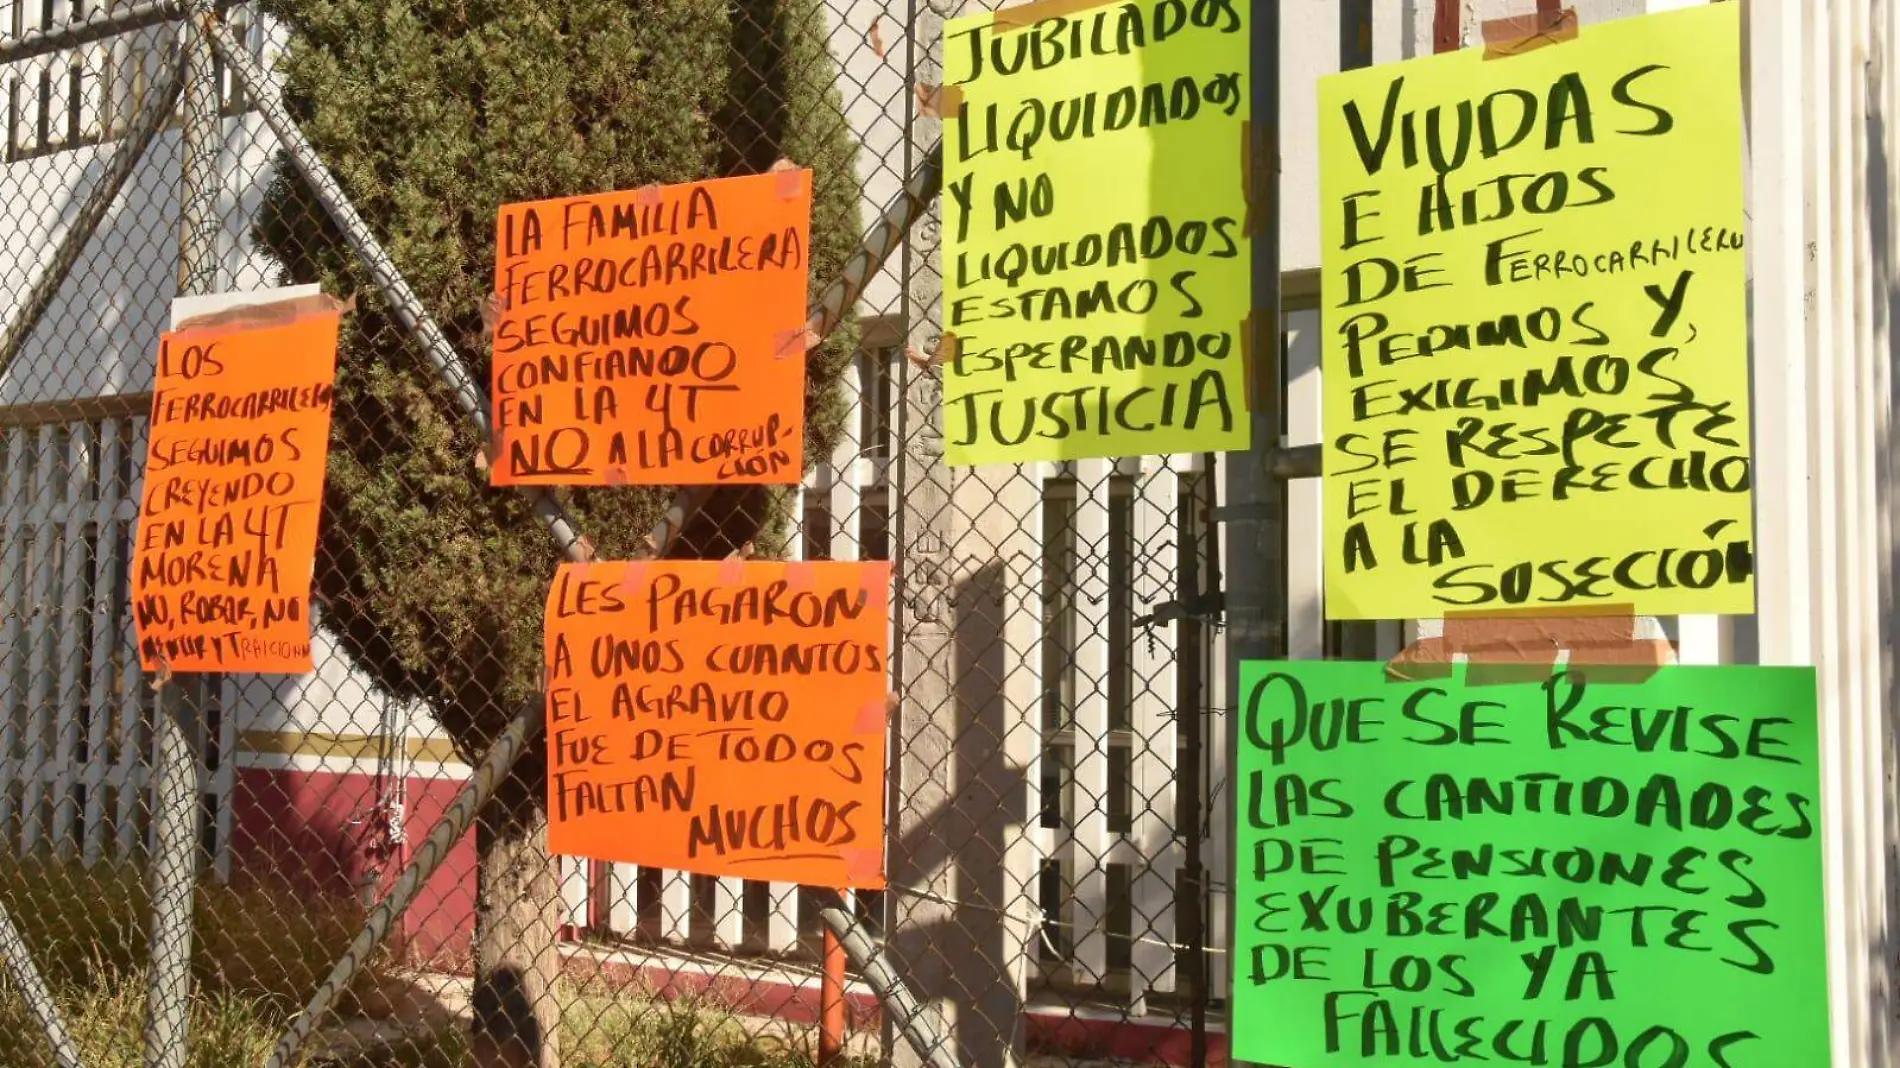 LOS
FERROCARRILEROS
SEGUIMOS
CREYENDO
EN LA 4T
MORENA
NO, ROBAR, NO
MENTIR Y TRAICIONAR
LA FAMILIA
FERROCARRILERA
SEGUIMOS
CONFIANDO
EN LA 4T
NO A LA CORRUP-
CIÓN
LES PAGARON
A UNOS CUANTOS
EL AGRAVIO
FUE DE TODOS
FALTAN
MUCHOS
JUBILADOS
LIQUIDADOS
Y NO
LIQUIDADOS
ESTAMOS
ESPERANDO
JUSTICIA
VIUDAS
E HIJOS
DE FERROCARRILERO
PEDIMOS Y,
EXIGIMOS
SE RESPETE
EL DERECHO
A LA
SUSECIÓN
QUE SE REVISE
LAS CANTIDADES
DE PENSIONES
EXUBERANTES
DE LOS YA
FALLECIDOS